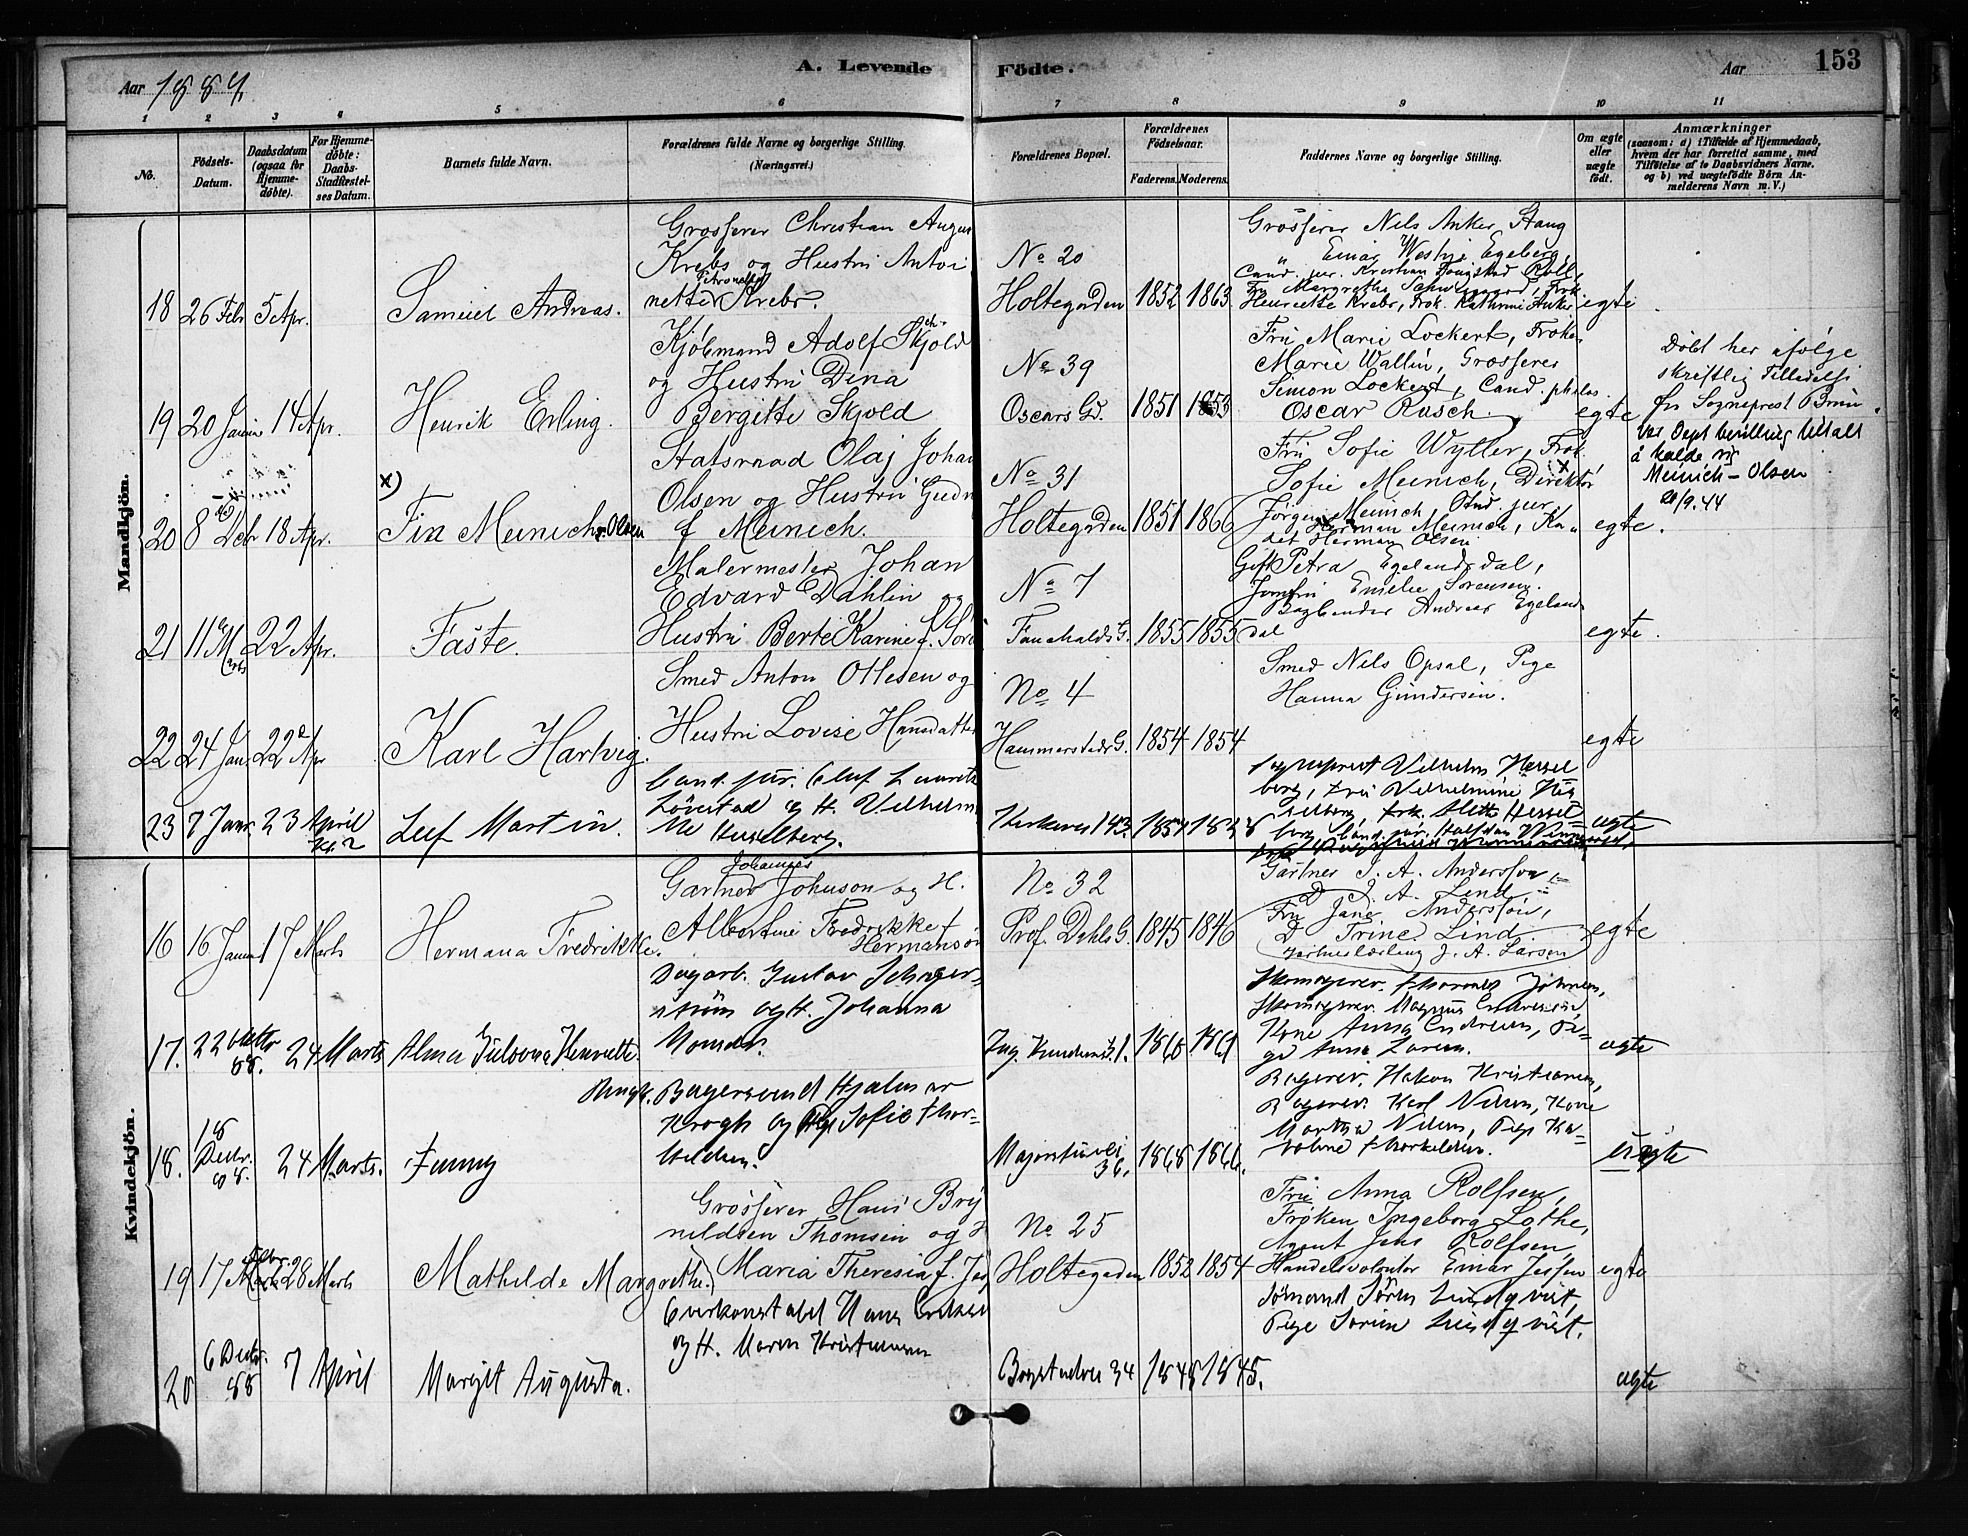 Aar 1889.
A. Levende Födte.
Aar
153
1 2 3 4 5 6 7 8 9 10 11
No.
Födsels-Datum.
Daabsdatum (ogsaa for Hjemme-döbte).
For Hjemme-döbte: Daabs-Stadfæstel-ses Datum.
Barnets fulde Navn.
Forældrenes fulde Navne og borgerlige Stilling.
(Næringsvei.)
Forældrenes Bopæl.
Forældrenes Födselsaar.
Faderens. Moderens.
Faddernes Navne og borgerlige Stilling.
Om ægte eller uægte födt.
Anmærkninger
(saasom: a) i Tilfælde af Hjemmedaab, hvem der har forrettet samme, med Tilföielse af to Daabsvidners Navne. og b) ved uægtefödte Börn An-melderens Navn m. V.)
Mandkjön.
18 26 Febr 5 Apr. Samuel Andreas.
Grosserer Christian Augus
Krebs og Hustru Antoi
Petronelle
nette Krebs.
No 20
Holtegaden 1852 1863
Grosserer Nils Anker Stang
" Einar Westye Egeberg,
Cand. jur. Kristian Roll,
Fru Margrethe
Henriette Krebs, Frøk. Kathrine Anker
egte
19 20 Januar 14 Apr. Henrik Erling.
Kjøbmand Adolf Skjold
og Hustru Dina
Bergitte Skjold
No 39
Oscars Gd. 1851 1855
Fru Marie Lockert, Frøken
Marie Wallin, Grosserer
Simon Lockert, Cand. philos.
Oscar Rusch.
egte
Døbt her ifølge
skriftlig Tilladelse
fra Sogneprest Bruu.
20 8 Decbr 18 Apr. x) Fin Meinich Olsen
Statsraad Olaj Johan
Olsen og Hustru Gudr
f Meinich.
No 31
Holtegaden 1851 1866
Fru Sofie Wyller, Frøk.
Sofie Meinich, Direktør
Jørgen Meinich, Stud. jur.
Herman Meinich, Ka-
det Herman Olsen
egte.
x
Dept bevilling tillatt
å kalde sig
Meinich-Olsen
20/9.44
21 11 Marts 22 Apr. Faste.
Malermester Johan
Edvard Dahlin og
Hustru Berte Karine f. Sør
No 7
Fauchalds G. 1855 1855
Gift Petra Egelandsdal,
Jomfru Emelie Sørensen.
Bogbinder Andreas Egelands
dal
egte.
22 24 Jan 22 Apr Karl Hartvig.
Smed Anton Ottesen og
Hustru Lovise Hansdatter
No 4
Hammerstads G. 1854 1854
Smed Nils Opsal, Pige
Hanna Gundersen.
egte
23 7 Janr 23 April Leif Martin.
Cand. jur. Oluf Lauretz
Løvstad og H. Vilhelmi
ne Hesselberg.
Kirkevei 143. 1854
Sogneprest Vilhelm Hessel
berg, Fru Vilhelmine Hes
selberg, Frk.
ægte
Kvindekjön.
16 16 Januar 17 Marts Hermana Fredrikke.
Johannes
Gartner Johnson og H.
Albertine Fredrikke f
Hermanson
No 32
Prof. Dahls G. 1845 1846
Gartner J. A. Andersson,
D J. A. Lind
Fru Jane Andersson,
D Trine Lind
J. A. Larsen
egte
17. 22 88. 24 Marts Alma Henriette.
Dagarb. Gustav
strøm og H. Johanna
1860 1861
Skomagersv.
Skomagersv. Magnus Endresen
Kone Anna Endresen, Pi-
ge Anna Larsen.
ægte
18. 18 Decbr. 88. 24 Marts. Fanny
Ungk. Bagersvend Hjalmar
Krogh og Pige Sofie Thor-
kildsen.
Majorstuvei 36. 1868 1866.
Bagersv. Hakon Kristiansen,
Bagersv. Karl Nilsen, Kone
Martha Nilsen, Pige Ka-
roline Thorkildsen.
uægte
19 17 Febr. 28 Marts Mathilde Margrethe.
Grosserer Hans Bry
nildsen Thomsen og H
Maria Theresia f. Jes
No 25
Holtegaden 1852 1854
Fru Anna Rolfsen,
Frøken Ingeborg Lothe,
Agent Jens Rolfsen,
Handelsvolontør Einar Jessen
egte
20 6 Decbr. 88 7 April Margit Augusta.
Overkonstabel Hans Eriksen
og H. Maren Kristiansen
Bogstadvei 34 1848 1845.
Sømand Søren Lindqvist,
Pige Sørine Lindqvist.
ægte